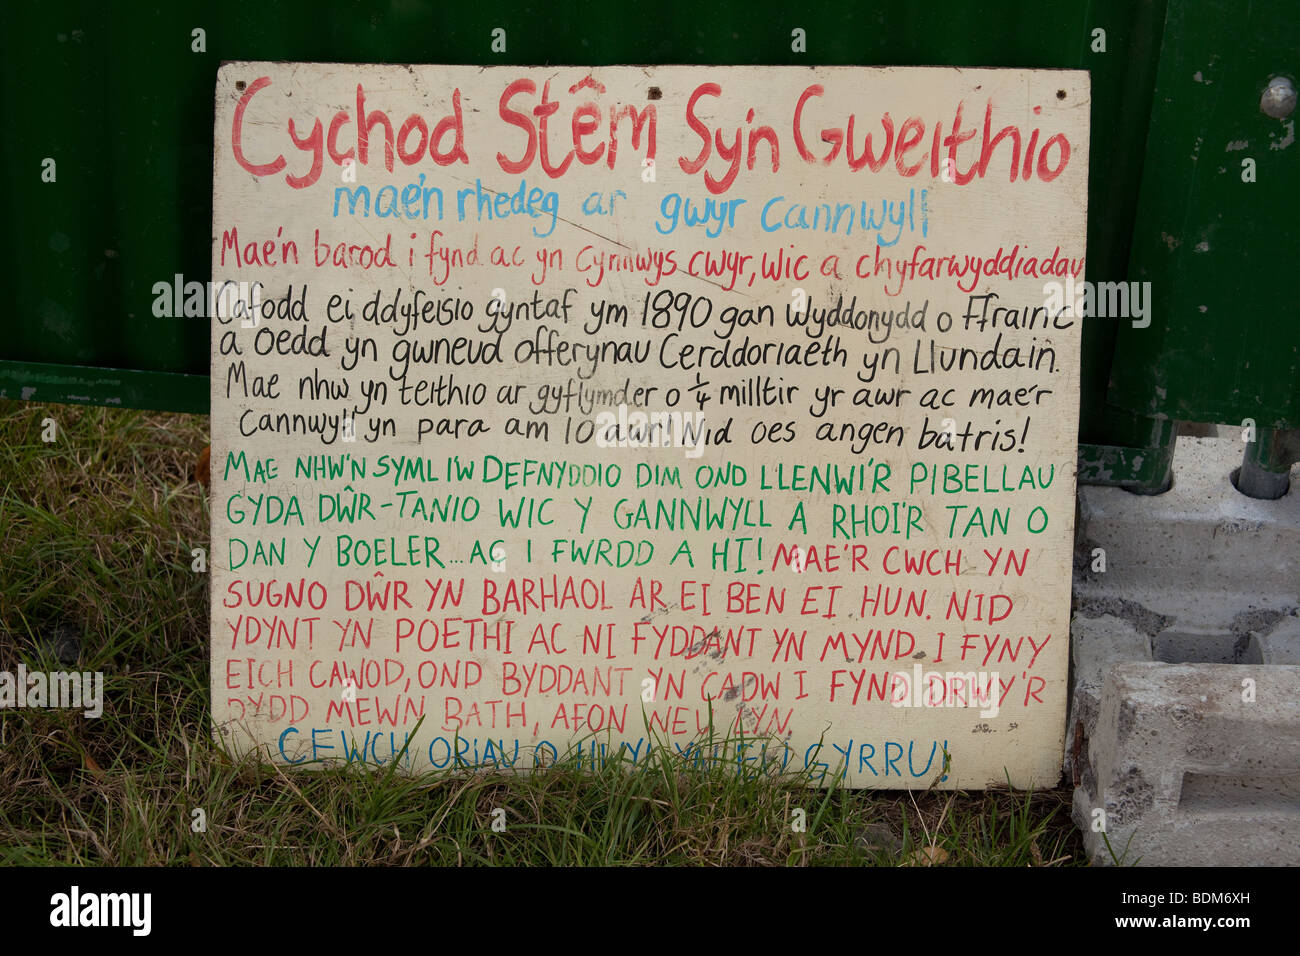 Cychod Stêm Sy'n Gweithio
mae'n rhedeg ar gwyr cannwyll
Mae'n barod i fynd ac yn cynnwys cwyr, wic a chyfarwyddiadau
Cafodd ei ddyfeisio gyntaf ym 1890 gan Wyddonydd o Ffrainc
a oedd yn gwneud offerynau Cerddoriaeth yn Llundain.
Mae nhw yn teithio ar gyflymder o ¼ milltir yr awr ac mae'r
Cannwyll yn para am 10 awr! Nid oes angen batris!
MAE NHW'N SYML I'W DEFNYDDIO DIM OND LLENWI'R PIBELLAU
GYDA DŴR-TANIO WIC Y GANNWYLL A RHOI'R TAN O
DAN Y BOELER... AC I FWRDD A HI! MAE'R CWCH YN
SUGNO DŴR YN BARHAOL AR EI BEN EI HUN. NID
YDYNT YN POETHI AC NI FYDDANT YN MYND I FYNY
EICH CAWOD, OND BYDDANT YN CADW I FYND DRWY'R
DYDD MEWN BATH, AFON NEU LYN.
CEWCH ORIAU O HWYL YN EU GYRRU!
alamy
Image ID: BDM6XH
www.alamy.com